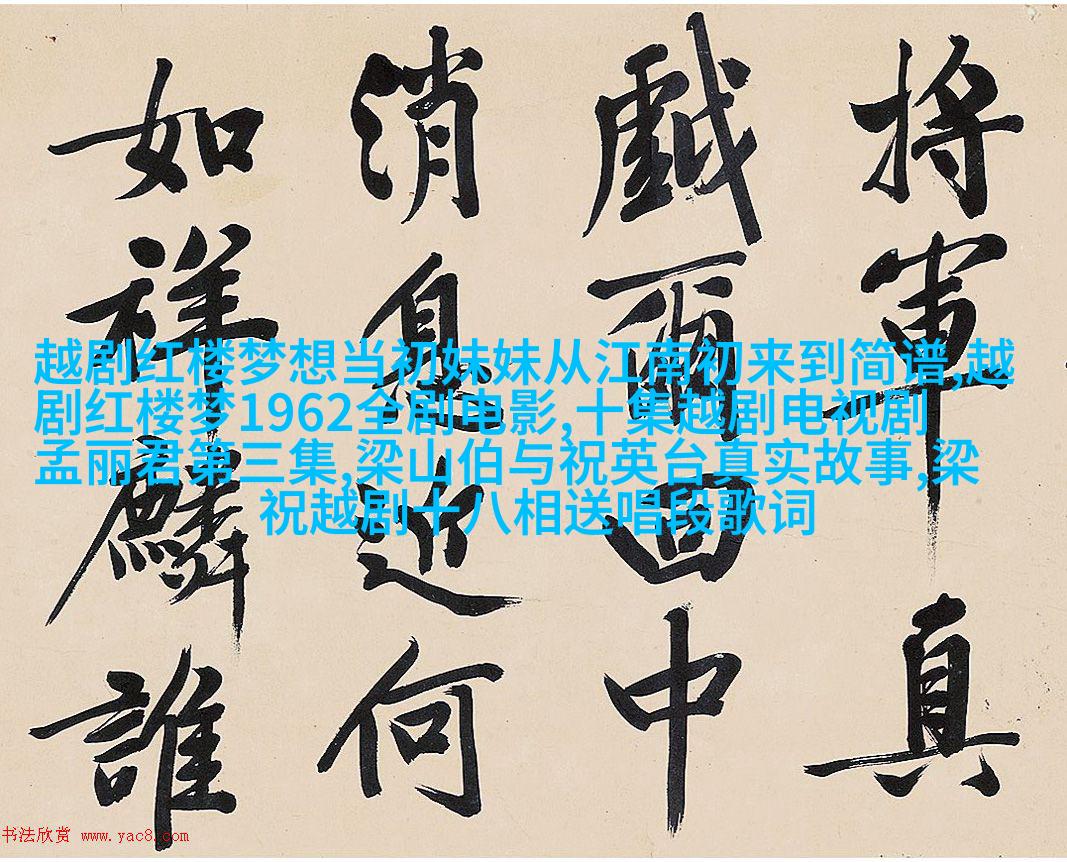 将軍真
戯回中
消息近何
如祥麟誰
越剧红楼梦想当初妹妹从江南初来到简谱,越
剧红楼梦1962全剧电影,十集越剧电视剧
孟丽君第三集,梁山伯与祝英台真实故事,梁
祝越剧十八相送唱段歌词
书法欣赏 www.yac8.com